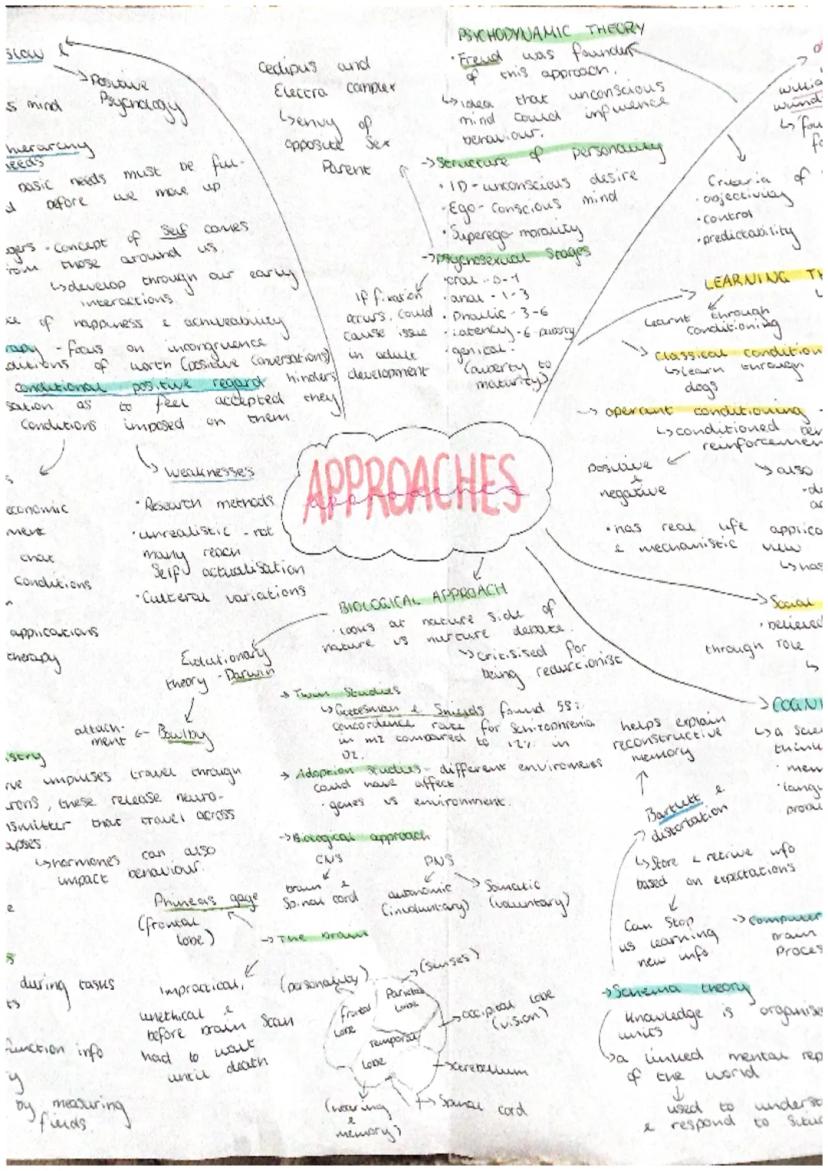 PSYCHODYNAMIC THEORY
· Freud was founder
of this approach.
↳ idea that unconscious
mind could influence
behaviour.
→ Structure of personality
· ID - unconscious desire
Ego - Conscious mind
· Superego - morality
→ Psychosexual Stages
· oral - 0-1
· anal - 1-3
· Phallic - 3-6
· Latency - 6-puberty
· genital -
(puberty to
maturity)
Oedipus and
Electra complex
↳ envy of
opposite sex
Parent
If fixation
occurs, could
cause issue
in adult
development
→ Positive
Psychology
s mind
hierarchy
needs
basic needs must be ful-
before we move up
ogers - concept of Self comes
from those around us
↳ develop through our early
interactions.
of happiness & achieveability
rapy - focus on incongruence
ditions of worth (positive conversations)
conditional positive regard hinders
sation as to feel accepted they
conditions imposed on them
→ weaknesses
· Research methods
· unrealistic - not
many reach
Self actualisation
· Cultural variations
economic
ment
that
conditions
applications
therapy
Criteria of
· objectivity
· control
· predictability
LEARNING TH
learnt through
conditioning
classical condition
↳ learn through
dogs
→ operant conditioning -
↳ conditioned be
reinforcemen
positive
&
negative
→ also
· has real life applica
& mechanistic view
↳ has
→ Social
· believed
through role
APPROACHES
approaches
BIOLOGICAL APPROACH
· looks at nature side of
nature vs nurture debate.
↳ critisised for
being reductionist
Evolutionary
theory - Darwin
attach-
ment ← Bowlby
→ Twin Studies
↳ Gottesman & Shields found 58%
concordance rate for Schizophrenia
in MZ compared to 12% in
DZ.
→ Adoption Studies - different enviroments
could have affect
· genes vs environment.
→ Biological approach
CNS
brain &
Spinal cord
PNS
autonomic
(involuntary)
Somatic
(voluntary)
istry
rve impulses travel through
rons, these release neuro-
nsmitter that travel across
apses
↳ hormones can also
impact behaviour.
Phineas gage
(frontal
lobe)
→ The brain
Impractical,
unethical &
before brain scan
had to wait
until death
(personality)
frontal
lobe
Parietal
lobe
(senses)
temporal
lobe
→ occipital lobe
(vision)
→ cerebellum
→ Spinal cord
(hearing
&
memory)
during tasks
function info
by measuring
fields.
→ COGNI
↳ a scie
think
· mem
· lang
helps explain
reconstructive
memory
Bartlett &
distortation
↳ Store & retrive info
based on expectations
Can Stop
us learning
new info
→ computer
brain
proces
→ Schema theory
Knowledge is organise
units
a linked mental rep
of the world
used to underst
& respond to situa